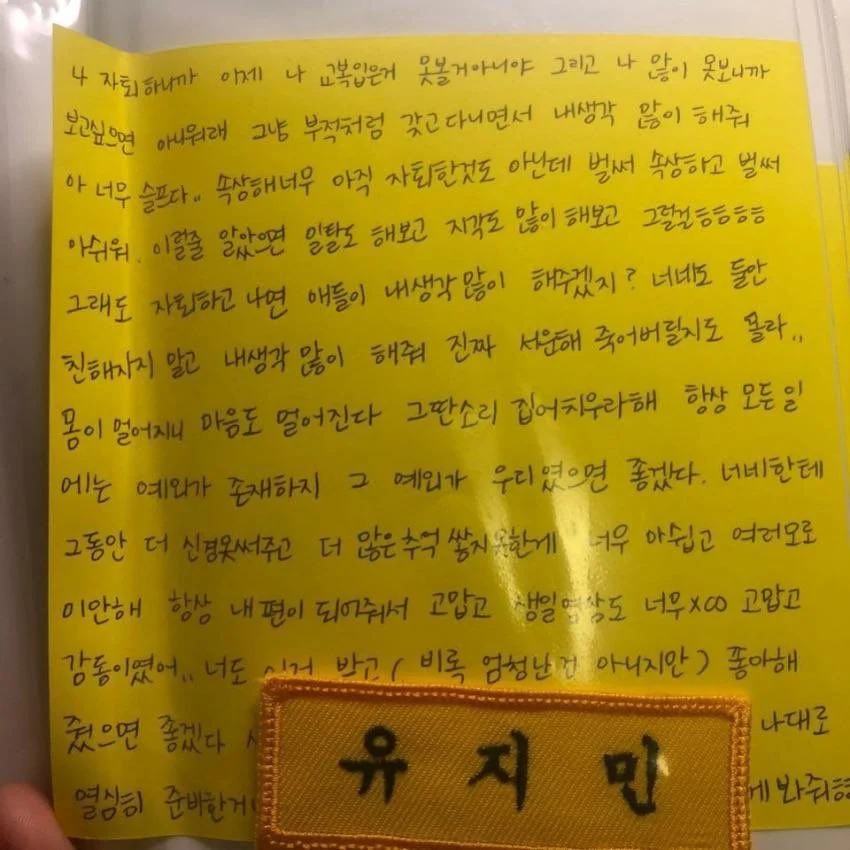 나 자퇴하니까 이제 나 교복입은거 못볼거아니야 그리고 나 많이 못보니까
보고싶으면 아니뭐래 그냥 부적처럼 갖고다니면서 내생각 많이 해줘
아 너무 슬프다.. 속상해너무 아직 자퇴한것도 아닌데 벌써 속상하고 벌써
아쉬워. 이럴줄 알았으면 일탈도 해보고 지각도 많이 해보고 그럴걸ㅎㅎㅎㅎ
그래도 자퇴하고 나면 애들이 내생각많이 해주겠지? 너네도 둘만
친해지지 말고 내생각 많이 해줘 진짜 서운해 죽어버릴지도 몰라..
몸이 멀어지니 마음도 멀어진다 그딴소리 집어치우라해 항상 모든일
에는 예외가 존재하지 그 예외가 우리였으면 좋겠다. 너네한테
그동안 더 신경못써주고 더 많은추억 쌓지못한게 너무 아쉽고 여러모로
미안해 항상 내편이 되어줘서 고맙고 생일영상도 너무x00 고맙고
감동이였어.. 너도 이거 받고 ( 비록 엄청난건 아니지만 ) 좋아해
줬으면 좋겠다 나대로
열심히 준비한거 게봐줘ㅎㅎ
유지민